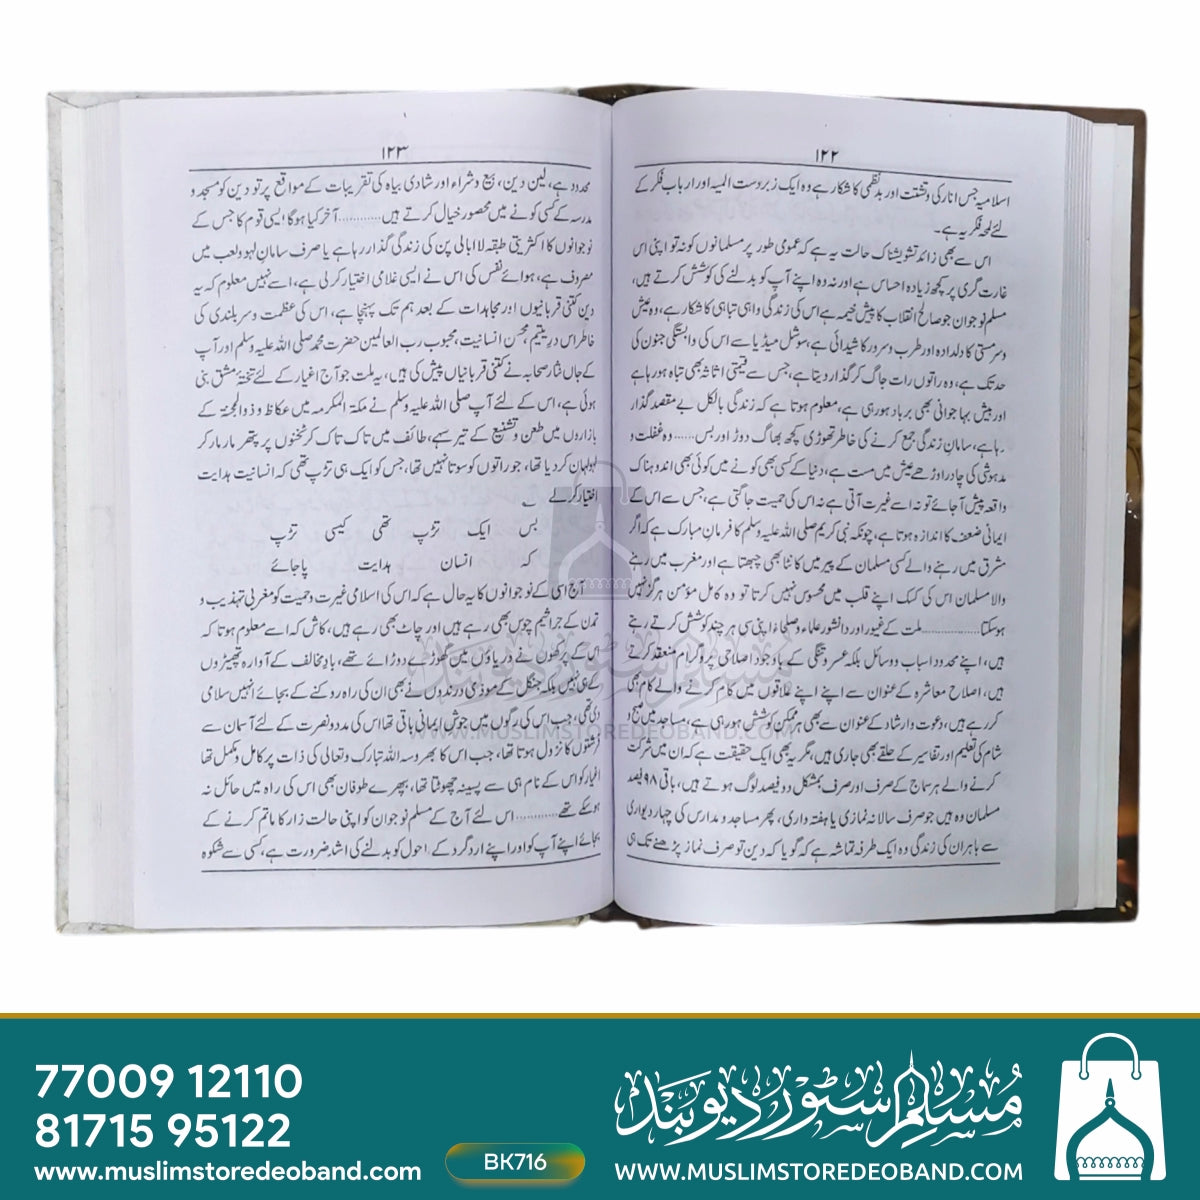 ۱۲۲
اسلامیہ جس انارکی و تشتت اور بدنظمی کا شکار ہے وہ ایک زبردست المیہ اور ارباب فکر کے
لئے لمحہ فکریہ ہے۔
اس سے بھی زائد تشویشناک حالت یہ ہے کہ عمومی طور پر مسلمانوں کو نہ تو اپنی اس
غارت گری پر کچھ زیادہ احساس ہے اور نہ وہ اپنے آپ کو بدلنے کی کوشش کرتے ہیں،
مسلم نوجوان جو صالح انقلاب کا پیش خیمہ ہے اس کی زندگی واہی تباہی کا شکار ہے، وہ عیش
و سرمستی کا دلدادہ اور طرب و سرور کا شیدائی ہے، سوشل میڈیا سے اس کی وابستگی جنون کی
حد تک ہے، وہ راتوں رات جاگ کر گذار دیتا ہے، جس سے قیمتی اثاثہ بھی تباہ ہو رہا ہے
اور بیش بہا جوانی بھی برباد ہو رہی ہے، معلوم ہوتا ہے کہ زندگی بالکل بے مقصد گذار
رہا ہے، سامانِ زندگی جمع کرنے کی خاطر تھوڑی کچھ بھاگ دوڑ اور بس...... وہ غفلت و
مدہوشی کی چادر اوڑھے عیش میں مست ہے، دنیا کے کسی بھی کونے میں کوئی بھی اندوہناک
واقعہ پیش آ جائے تو نہ اسے غیرت آتی ہے نہ اس کی حمیت جاگتی ہے، جس سے اس کے
ایمانی ضعف کا اندازہ ہوتا ہے، چونکہ نبی کریم صلی اللہ علیہ وسلم کا فرمانِ مبارک ہے کہ اگر
مشرق میں رہنے والے کسی مسلمان کے پیر میں کانٹا بھی چبھتا ہے اور مغرب میں رہنے
والا مسلمان اس کی کسک اپنے قلب میں محسوس نہیں کرتا تو وہ کامل مؤمن ہرگز نہیں
ہوسکتا................ ملت کے غیور اور دانشور علماء و صلحاء اپنی سی ہر چند کوشش کرتے رہتے
ہیں، اپنے محدود اسباب و وسائل بلکہ عسر و تنگی کے باوجود اصلاحی پروگرام منعقد کرتے
ہیں، اصلاح معاشرہ کے عنوان سے اپنے اپنے علاقوں میں کام کرنے والے کام بھی
کر رہے ہیں، دعوت و ارشاد کے عنوان سے بھی ہر ممکن کوشش ہو رہی ہے، مساجد میں صبح و
شام کی تعلیم اور تفاسیر کے حلقے بھی جاری ہیں، مگر یہ بھی ایک حقیقت ہے کہ ان میں شرکت
کرنے والے ہر سماج کے صرف اور صرف بمشکل دو فیصد لوگ ہوتے ہیں، باقی ۹۸ فیصد
مسلمان وہ ہیں جو صرف سالانہ نمازی یا ہفتہ واری، پھر مساجد و مدارس کی چہار دیواری
سے باہر ان کی زندگی وہ ایک طرفہ تماشہ ہے کہ گویا کہ دین تو صرف نماز پڑھنے تک ہی
۱۲۳
محدود ہے، لین دین، بیع و شراء اور شادی بیاہ کی تقریبات کے مواقع پر تو دین کو مسجد و
مدرسہ کے کسی کونے میں محصور خیال کرتے ہیں............ آخر کیا ہوگا ایسی قوم کا جس کے
نوجوانوں کا اکثریتی طبقہ لاابالی پن کی زندگی گذار رہا ہے یا صرف سامانِ لہو ولعب میں
مصروف ہے، ہوائے نفس کی اس نے ایسی غلامی اختیار کرلی ہے، اسے نہیں معلوم کہ یہ
دین کتنی قربانیوں اور مجاہدات کے بعد ہم تک پہنچا ہے، اس کی عظمت و سربلندی کی
خاطر اس درِ یتیم محسن انسانیت، محبوب رب العالمین حضرت محمد صلی اللہ علیہ وسلم اور آپ
کے جاں نثار صحابہ نے کتنی قربانیاں پیش کی ہیں، یہ ملت جو آج اغیار کے لئے تختۂ مشق بنی
ہوئی ہے، اس کے لئے آپ صلی اللہ علیہ وسلم نے مکۃ المکرمہ میں عکاظ و ذوالمجنۃ کے
بازاروں میں طعن و تشنیع کے تیر سہے، طائف میں تاک تاک کر ٹخنوں پر پتھر مار مار کر
لہولہان کر دیا تھا، جو راتوں کو سوتا نہیں تھا، جس کو ایک ہی تڑپ تھی کہ انسانیت ہدایت
اختیار کرلے ؎
بس ایک تڑپ تھی کیسی تڑپ
کہ انسان ہدایت پا جائے
آج اسی کے نوجوانوں کا یہ حال ہے کہ اس کی اسلامی غیرت و حمیت کو مغربی تہذیب و
تمدن کے جراثیم چوس بھی رہے ہیں اور چاٹ بھی رہے ہیں، کاش کہ اسے معلوم ہوتا کہ
اس کے پرکھوں نے دریاؤں میں گھوڑے دوڑائے تھے، بادِ مخالف کے آوارہ تھپیڑوں
کے ہی نہیں بلکہ جنگل کے موذی درندوں نے بھی ان کی راہ روکنے کے بجائے انہیں سلامی
دی تھی، جب اس کی رگوں میں جوشِ ایمانی باقی تھا اس کی مدد و نصرت کے لئے آسمان سے
فرشتوں کا نزول ہوتا تھا، جب اس کا بھروسہ اللہ تبارک و تعالی کی ذات پر کامل و مکمل تھا
اغیار کو اس کے نام ہی سے پسینہ چھوٹتا تھا، بپھرے طوفان بھی اس کی راہ میں حائل نہ
ہو سکے تھے............ اس لئے آج کے مسلم نوجوان کو اپنی حالت زار کا ماتم کرنے کے
بجائے اپنے آپ کو اور اپنے اردگرد کے ماحول کو بدلنے کی اشد ضرورت ہے، کسی سے شکوہ
مسلم سٹور دیوبند
WWW.MUSLIMSTOREDEOBAND.COM
77009 12110
81715 95122
www.muslimstoredeoband.com
BK716
مسلم سٹور دیوبند
WWW.MUSLIMSTOREDEOBAND.COM